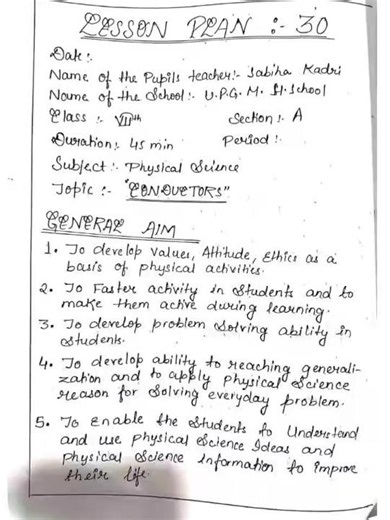 LESSON PLAN :- 30
Date :
Name of the Pupils teacher :- Sabiha Kadri
Name of the School :- U.P.G. M. H. School
Class : VIIth Section : A
Duration : 45 min Period :
Subject :- Physical Science
Topic :- "CONDUCTORS"
GENERAL AIM
1. To develop values, Attitude, Ethics as a
basis of physical activities.
2. To Faster activity in Students and to
make them active during learning.
3. To develop problem Solving ability in
Students.
4. To develop ability to reaching generali-
zation and to apply physical Science
reason for Solving everyday problem.
5. To Enable the Students to Understand
and use physical Science Ideas and
physical Science Information to improve
their life.